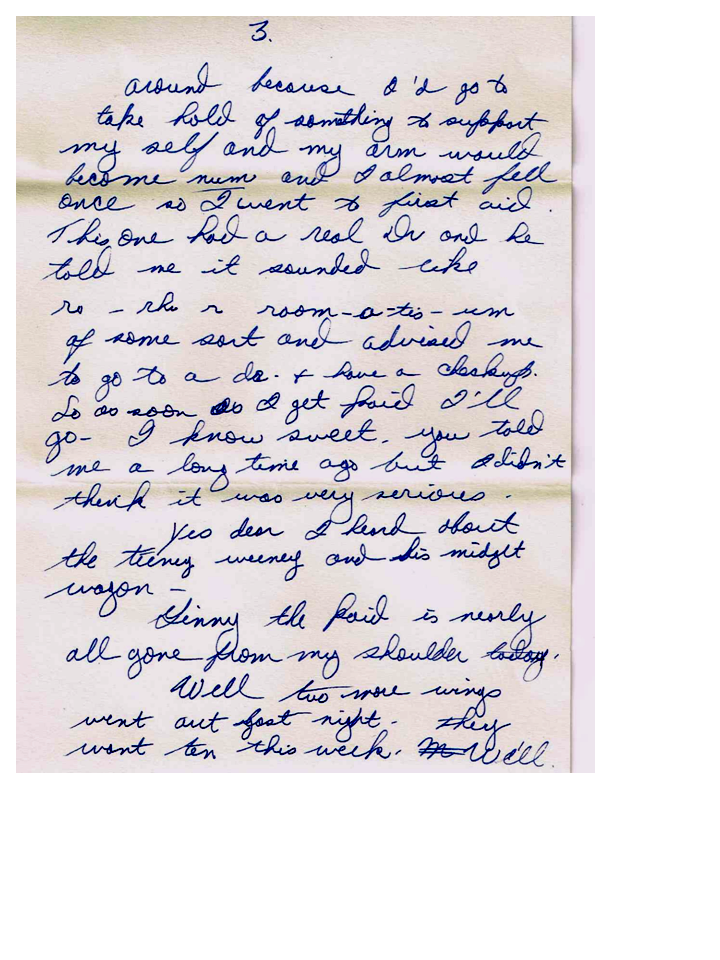 3.
around because I'd go to
take hold of something to support
my self and my arm would
become num and I almost fell
once so I went to first aid.
This one had a real Dr and he
told me it sounded like
ro - rhu r room-a-tis-um
of some sort and advised me
to go to a do. + have a checkup.
So as soon as I get paid I'll
go- I know sweet, you told
me a long time ago but I didn't
think it was very serious.
Yes dear I heard about
the teeney weeney and his midget
wagon -
Ginny the paid is nearly
all gone from my shoulder today.
Well two more wings
went out last night. they
want ten this week. We'll.